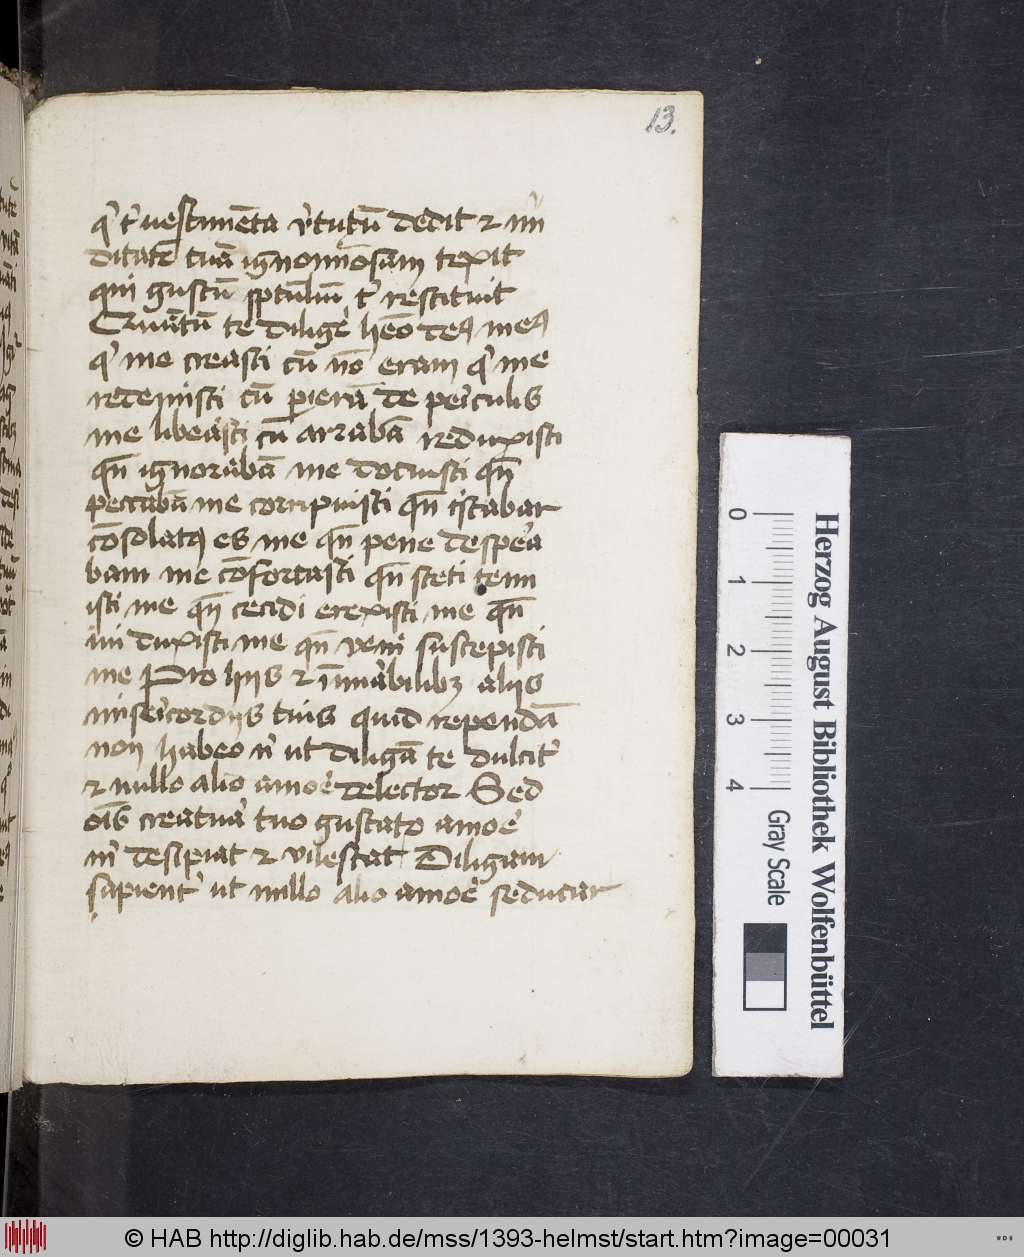 13.
qͥ tͥ uestimēta v̾tutū dedit ⁊ nu
ditatē tuā ignominiosam texit
qui gustū sp̄tualiū tͥ restituit
te diligē deꝰ meꝰ
qͥ me creasti cū nō eram qͥ me
redemisti cū ꝑierā de peͥculis
me libeasti cū arrabā reduxisti
qn̄ ignorabā me docuisti qn̄
peccabā me corripuisti qn̄ tͥstabar
cōsolatꝰ es me qn̄ pene despea
bam me cōfortasti qn̄ steti tenu
isti me qn̄ cecidi erexisti me qn̄
iui duxisti me qn̄ veni suscepisti
me Pro hijs ⁊ īnuͣabilibꝫ alijs
misericordijs tuis quid rependā
non habeo nͥ ut diligā te dulcit̾
⁊ nullo alio amoe delector Sed
oīs creatua tuo gustato amoe
mͥ desipiat ⁊ vilescat Diligam
sapient̾ ut nullo alio amoe seducar
Herzog August Bibliothek Wolfenbüttel
0 1 2 3 4
Gray Scale
© HAB http://diglib.hab.de/mss/1393-helmst/start.htm?image=00031